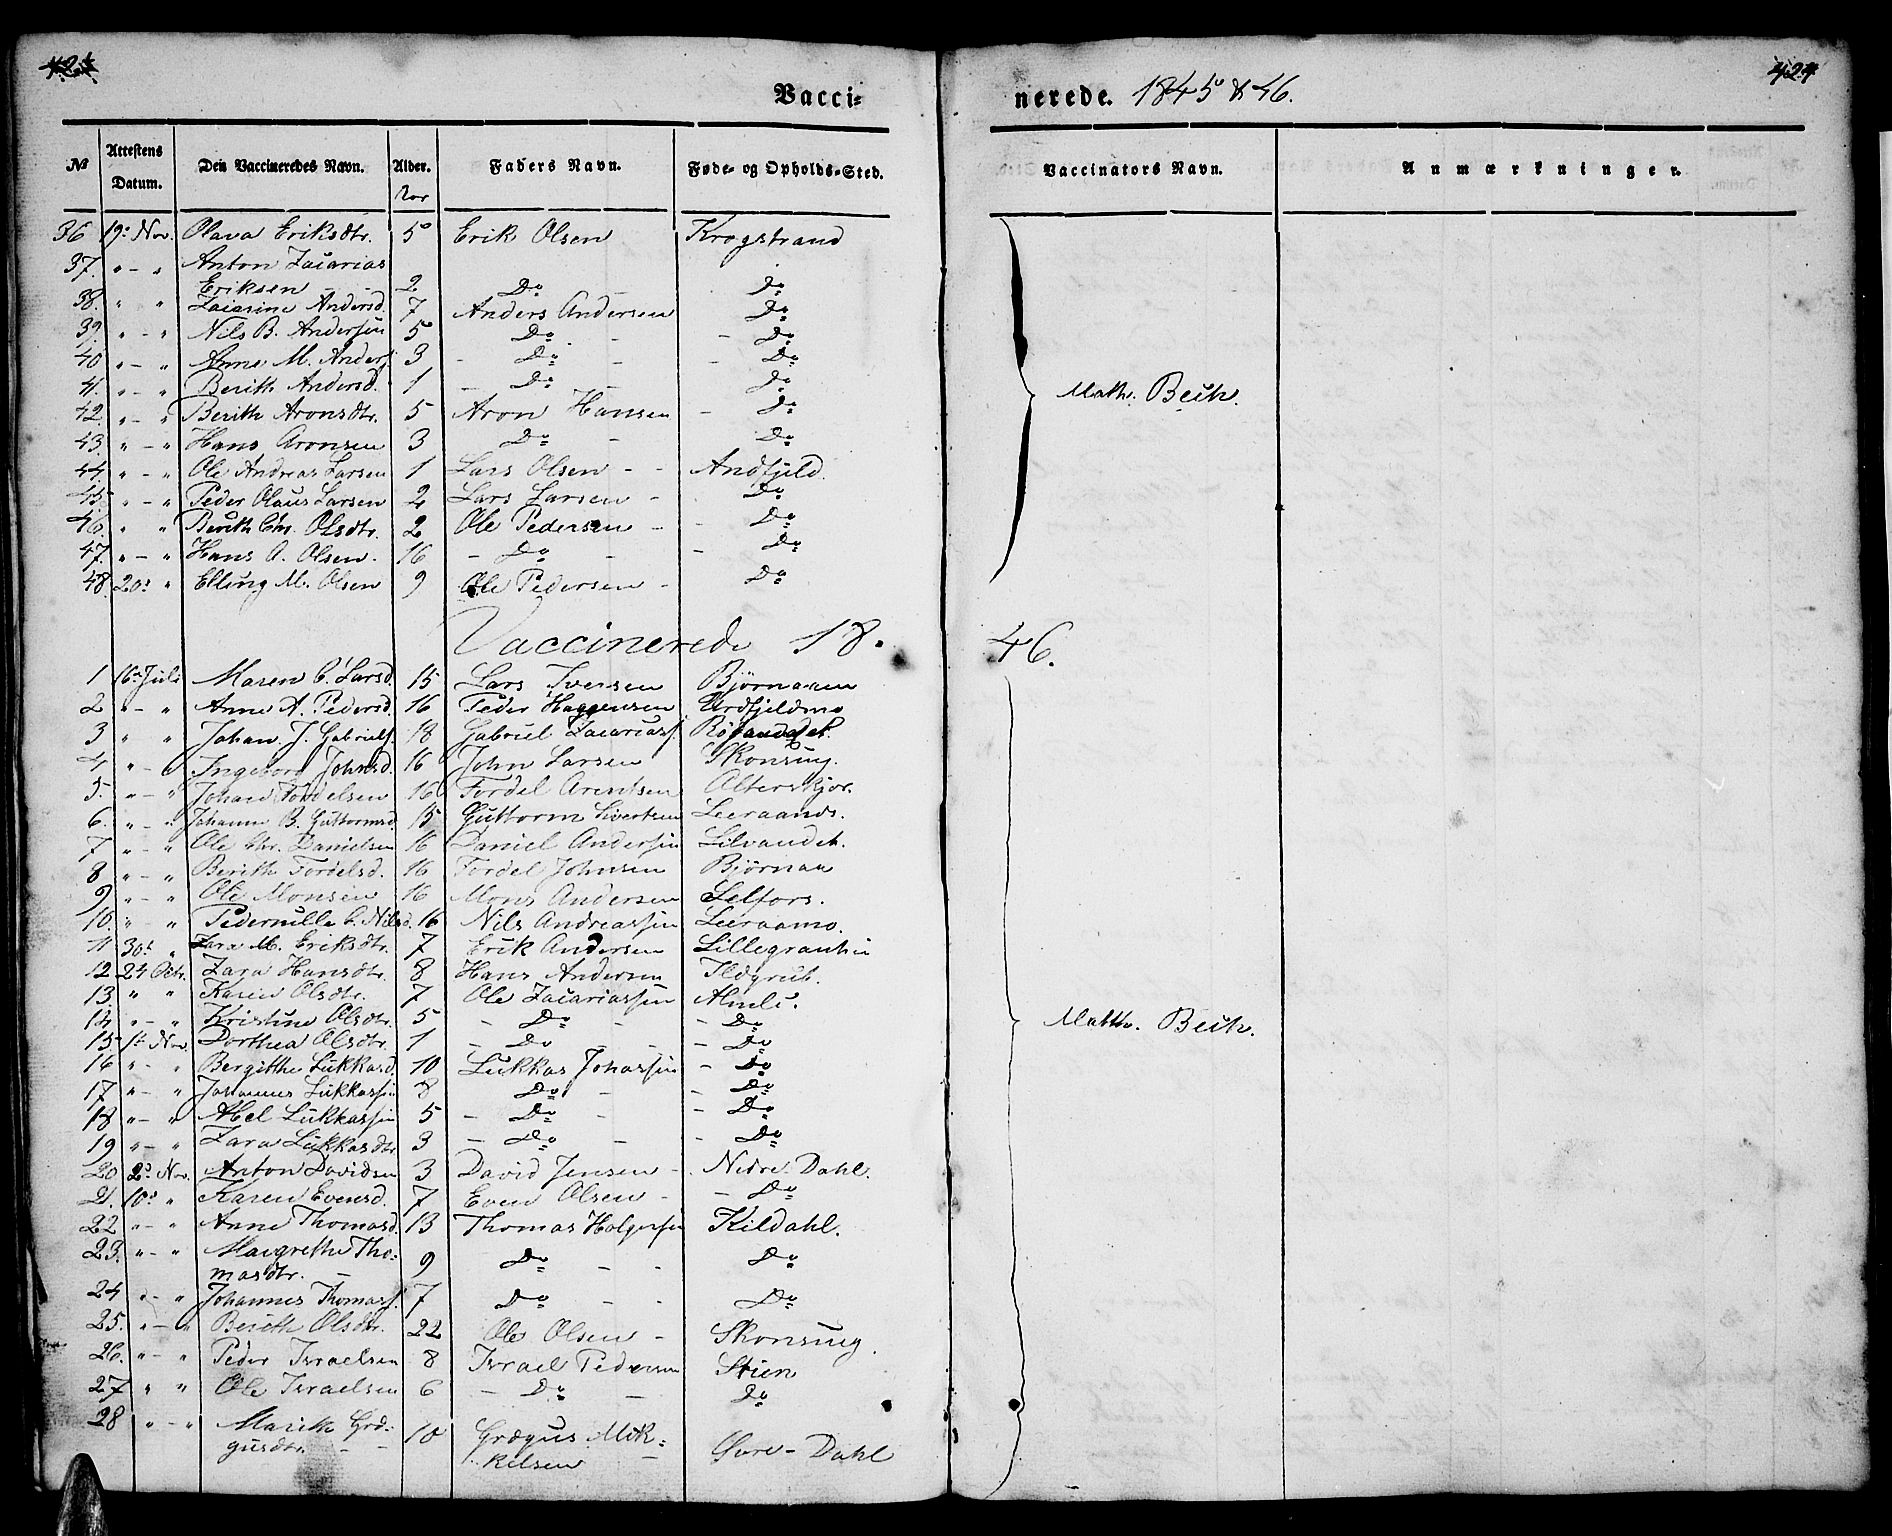 424
Vacci-
nerede. 1845 & 46.
№ Attestens Datum. Den Vaccineredes Navn. Alder. Aar Faders Navn. Føde- og Opholds-Sted. Vaccinators Navn. Anmærkninger.
36 19de Nov. Olava Eriksdtr. 5 Erik Olsen Krogstrand
37. " - " Anton Zacarias
Eriksen 2 Do Do
38. " " Zacarine Andersd. 7 Anders Andersen Do
39. " - " Nils B. Andersen 5 Do - - Do
40 " - " Anne M. Andersd. 3 - Do - - Do
41. " - " Berith Andersd. 1 - Do - Do
42. " - " Berith Aronsdtr. 5 Aron Hansen - Do
Math. Bech.
43. " - " Hans Aronsen 3 Do - Do
44. " - " Ole Andreas Larsen 1 Lars Olsen - - Andfjeld.
45. " - " Peder Olaus Larsen 2 Lars Larsen - Do
46. " " Berith Chr. Olsdtr. 2 Ole Pedersen - - Do
47. " - " Hans A. Olsen. 16 - Do - Do
48. 20de " Elling M. Olsen 9 Ole Pedersen - Do
Vaccinerede 18.
46.
1 16de Juli Maren C. Larsd. 15 Lars Iversen Bjørnaaen
2 " - " Anne A. Pedersd. 16 Peder Haggensen Urdfjeldmo
3 " " Johan J. Gabriels. 18 Gabriel Zacariass.
4 " - " Ingeborg Johnsd. 16 John Larsen Skonsæng.
5. " - " Johan Fordelsen 16 Fordel Arentsen Alterskjør.
6. " - " Johanna B. Guttormsd. 15 Guttorm Sivertsen Leeraands.
7 " - " Ole Chr. Danielsen 16 Daniel Andersen Lilvandet.
8 " - " Berith Fordelsd. 16 Fordel Johnsen Bjørnaa
9 " - " Ole Monsen 16 Mons Andersen Selfors.
10. " " Pedernille C. Nilsd. 16 Nils Andreassen Leeraamo.
11 30de " Zara M. Eriksdtr. 7 Erik Andersen
12 24 Octr. Zara Hansdtr. 8 Hans Andersen Ildgrub.
13. " " Karen Olsdtr. 7 Ole Zacariassen Almli.
14 " - " Kristine Olsdtr. 5 - Do - - Do
Matth. Bech.
15 1ste Nov. Dorthea Olsdtr. 1 - Do - - Do
16 " - " Bergitthe Lukkasd. 10 Lukkas Johassen - Do
17 " - " Johannes Lukkassen 8 Do - - Do
18 " - " Abel Lukkassen 5 - Do - Do
19 " - " Zara Lukkasdtr. 3 - Do - - Do
20 2de Nov. Anton Davidsen 3 David Jensen - Nedre Dahl.
21. 10de " Karen Evensd. 7 Even Olsen - - Do
22 " - " Anne Thomasd. 13 Thomas Holgersen Kildahl.
23. " - " Margrethe Tho-
masdtr. - 9 Do - - Do
24 " - " Johannes Thomass. 7 Do - - Do
25. " - " Berith Olsdtr. 22 Ole Olsen - Skonsæng.
26. " - " Peder Israelsen 8 Israel Pedersen Stien
27 " " Ole Israelsen 6 - Do - Do
28 " - " Marith Græ-
gusdtr. - - 10 Grægus Mik-
kelsen - Øvre - Dahl